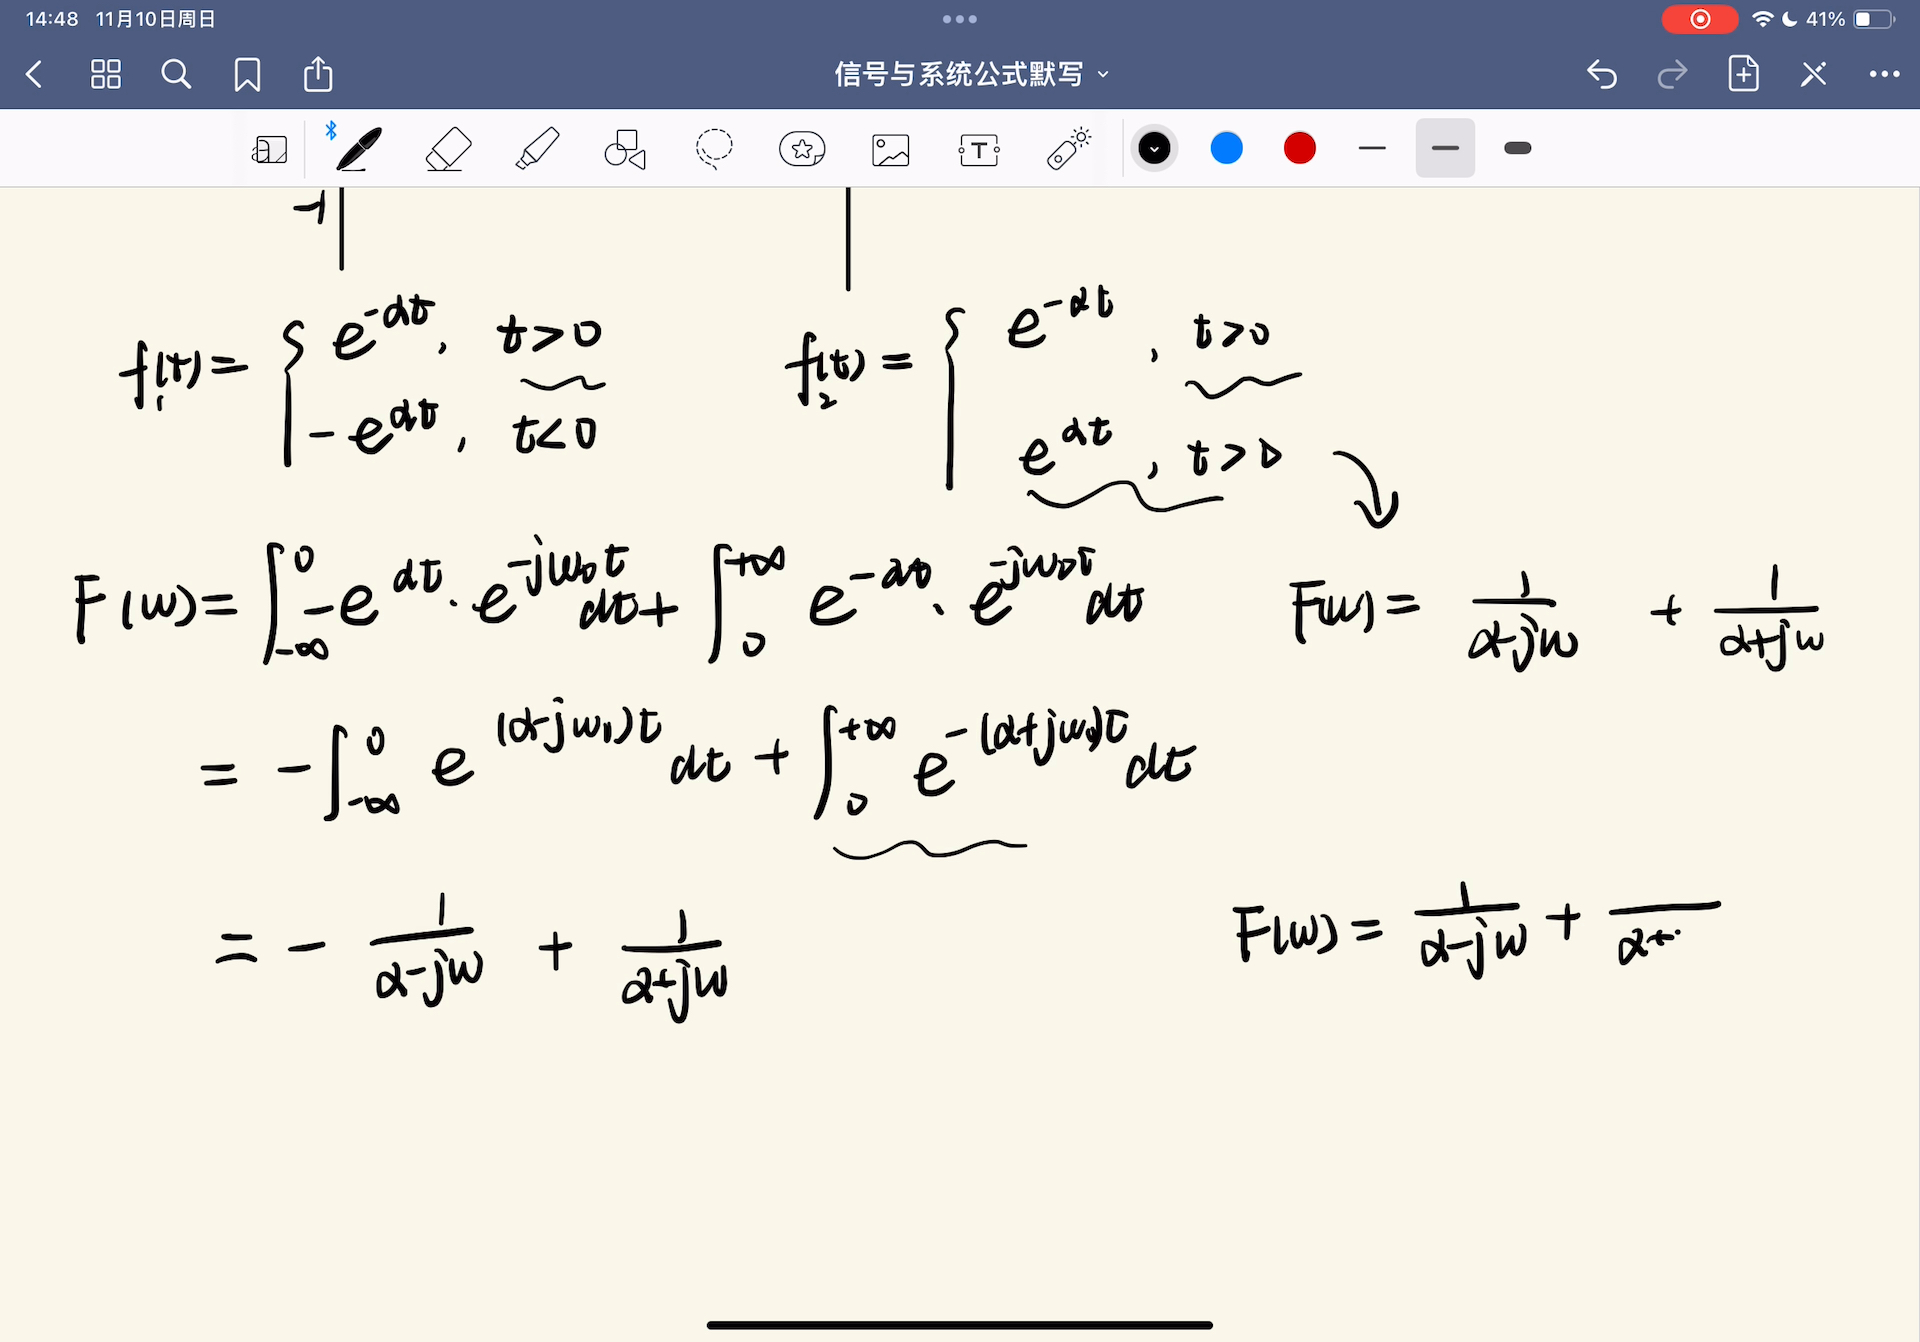 14:48 11月10日周日 41%
信号与系统公式默写
T
-1
f₁(t)= { e^{-αt}, t>0
-e^{αt}, t<0
f₂(t)= { e^{-αt}, t>0
e^{αt}, t>0
F(w)= ∫_{-∞}^{0} -e^{αt}·e^{-jw₀t}dt+ ∫_{0}^{+∞} e^{-αt}·e^{-jw₀t}dt
F(w)= 1/(α-jw) + 1/(α+jw)
= -∫_{-∞}^{0} e^{(α-jw₁)t}dt + ∫_{0}^{+∞} e^{-(α+jw₀)t}dt
= - 1/(α-jw) + 1/(α+jw)
F(w)= 1/(α-jw) + /(α+